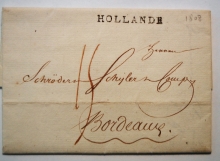 HOLLANDE
Herren
Schröder & Schyler & Comp.
Bordeaux